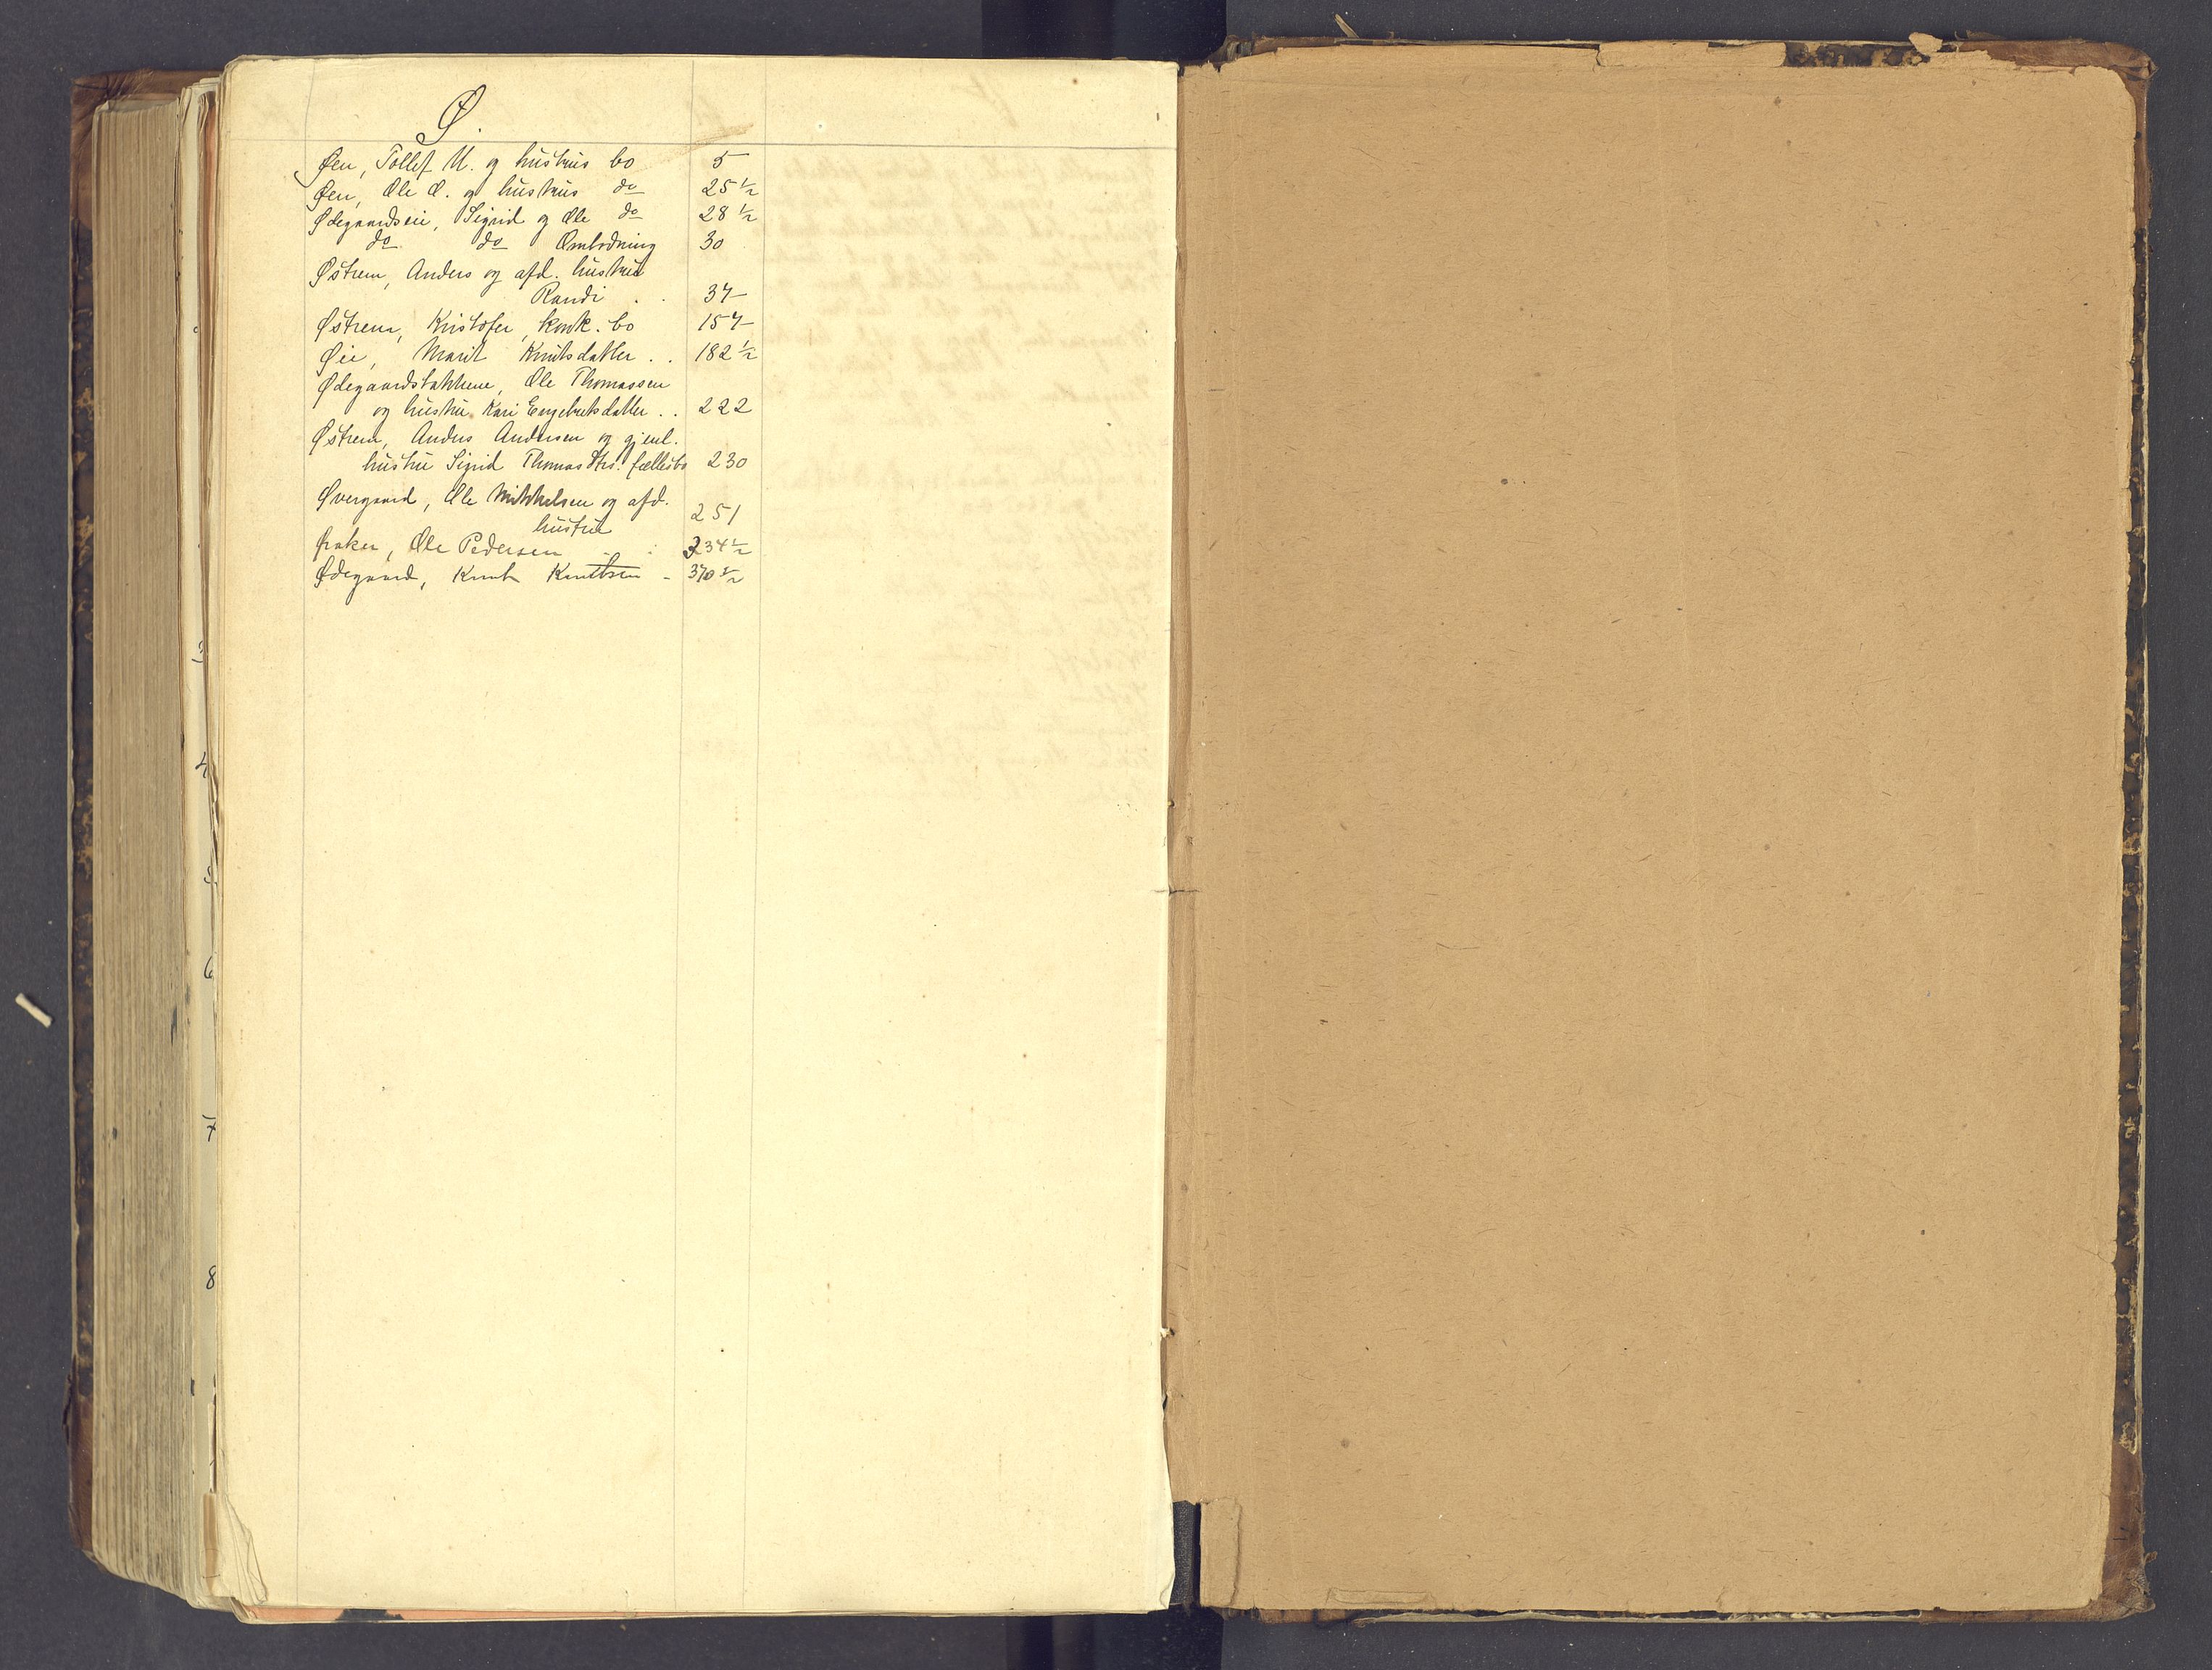 Ø.
Øen, Tollef U. og hustrus bo 5
Øen, Ole O. og hustrus do 25 ½
Ødegaardseie, Sigrid og Ole do 28 ½
do do Omlodning 30
Østrem, Anders og afd. hustru
Randi . . 37
Østrem, Kristofer, konk. bo 157
Øie, Marit Knutsdatter . . 182 ½
Ødegaardsbakkene, Ole Thomassen
og hustru Kari Engebretsdatter . . 222
Østrem, Anders Andersen og gjenl.
hustru Sigrid Thomasdtrs. fællesbo 230
Øvergaard, Ole Mikkelsen og afd.
hustru 251
Ole Pedersen 334 ½
Ødegaard, Knut Knutsen - 370 ½
3
4
5
6
7
8